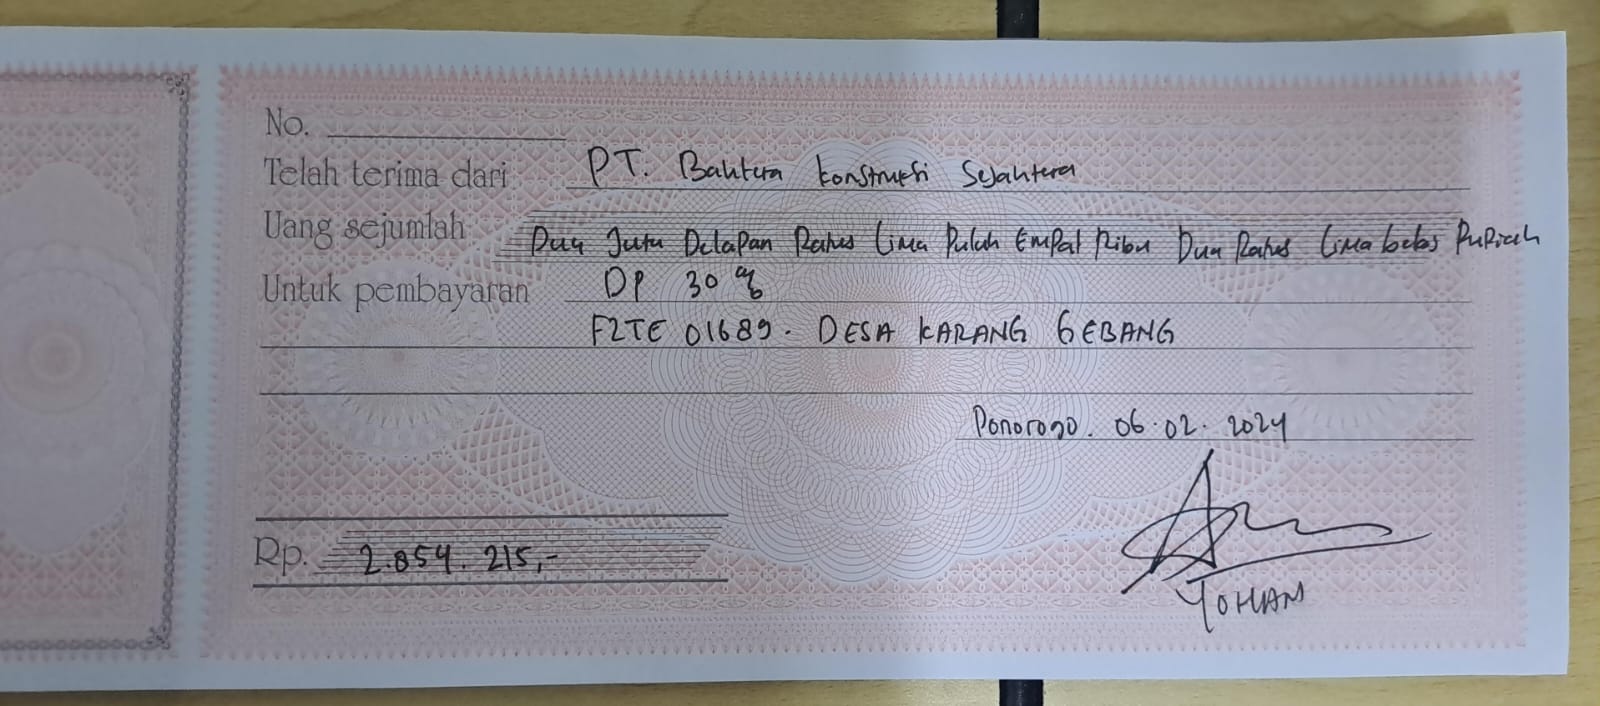 No.
Telah terima dari PT. Bahtera Konstruksi Sejahtera
Uang sejumlah Dua Juta Delapan Ratus Lima Puluh Empat Ribu Dua Ratus Lima belas Rupiah
Untuk pembayaran DP 30 %
F2TE 01689. DESA KARANG GEBANG
Ponorogo. 06.02.2024
Rp. 2.854.215,-
YOHAN